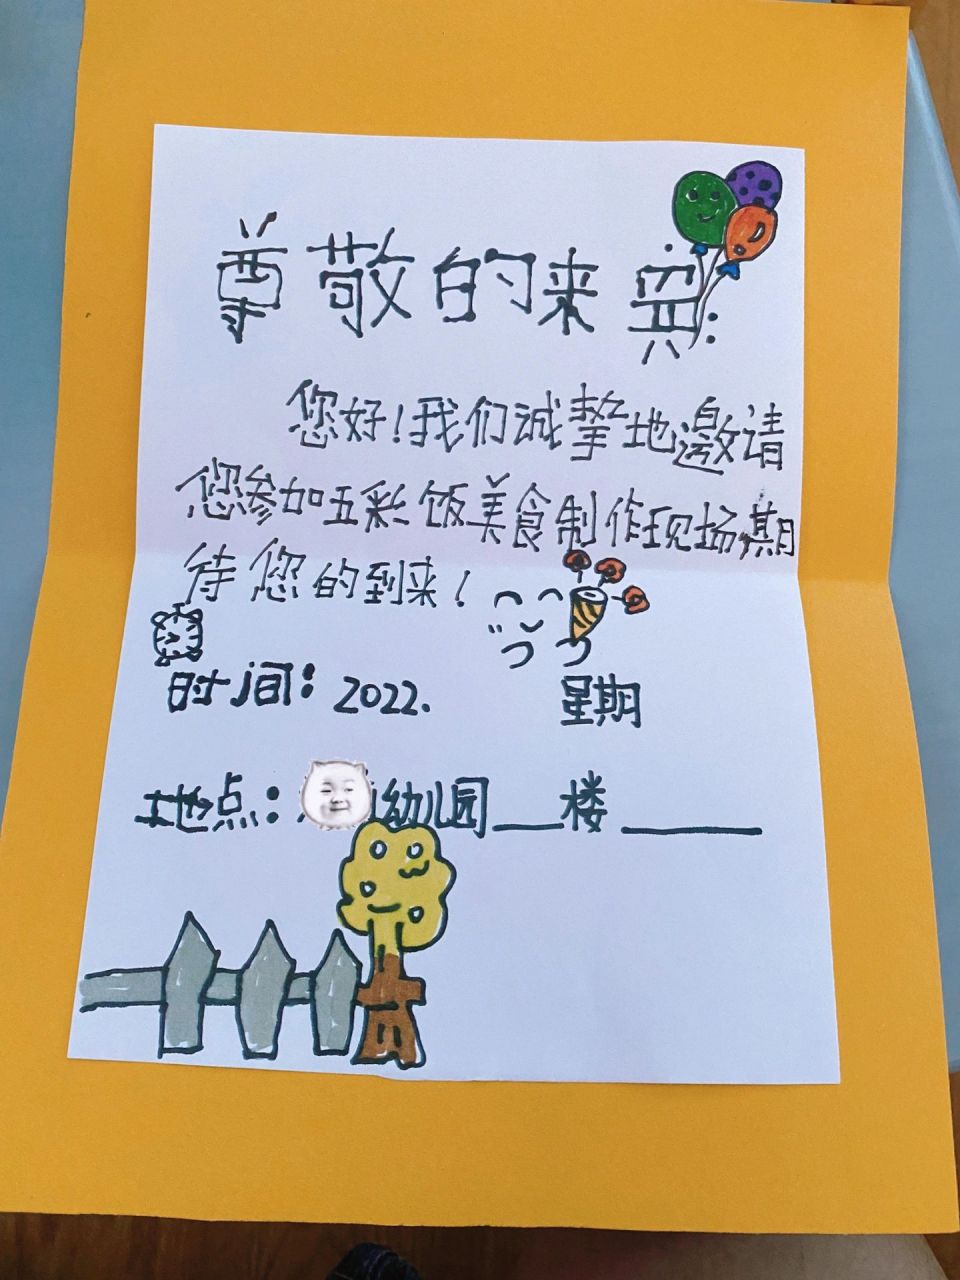 尊敬的来宾:
您好!我们诚挚地邀请
您参加五彩饭美食制作现场期
待您的到来!
时间:2022. 星期
地点: 幼儿园__楼____